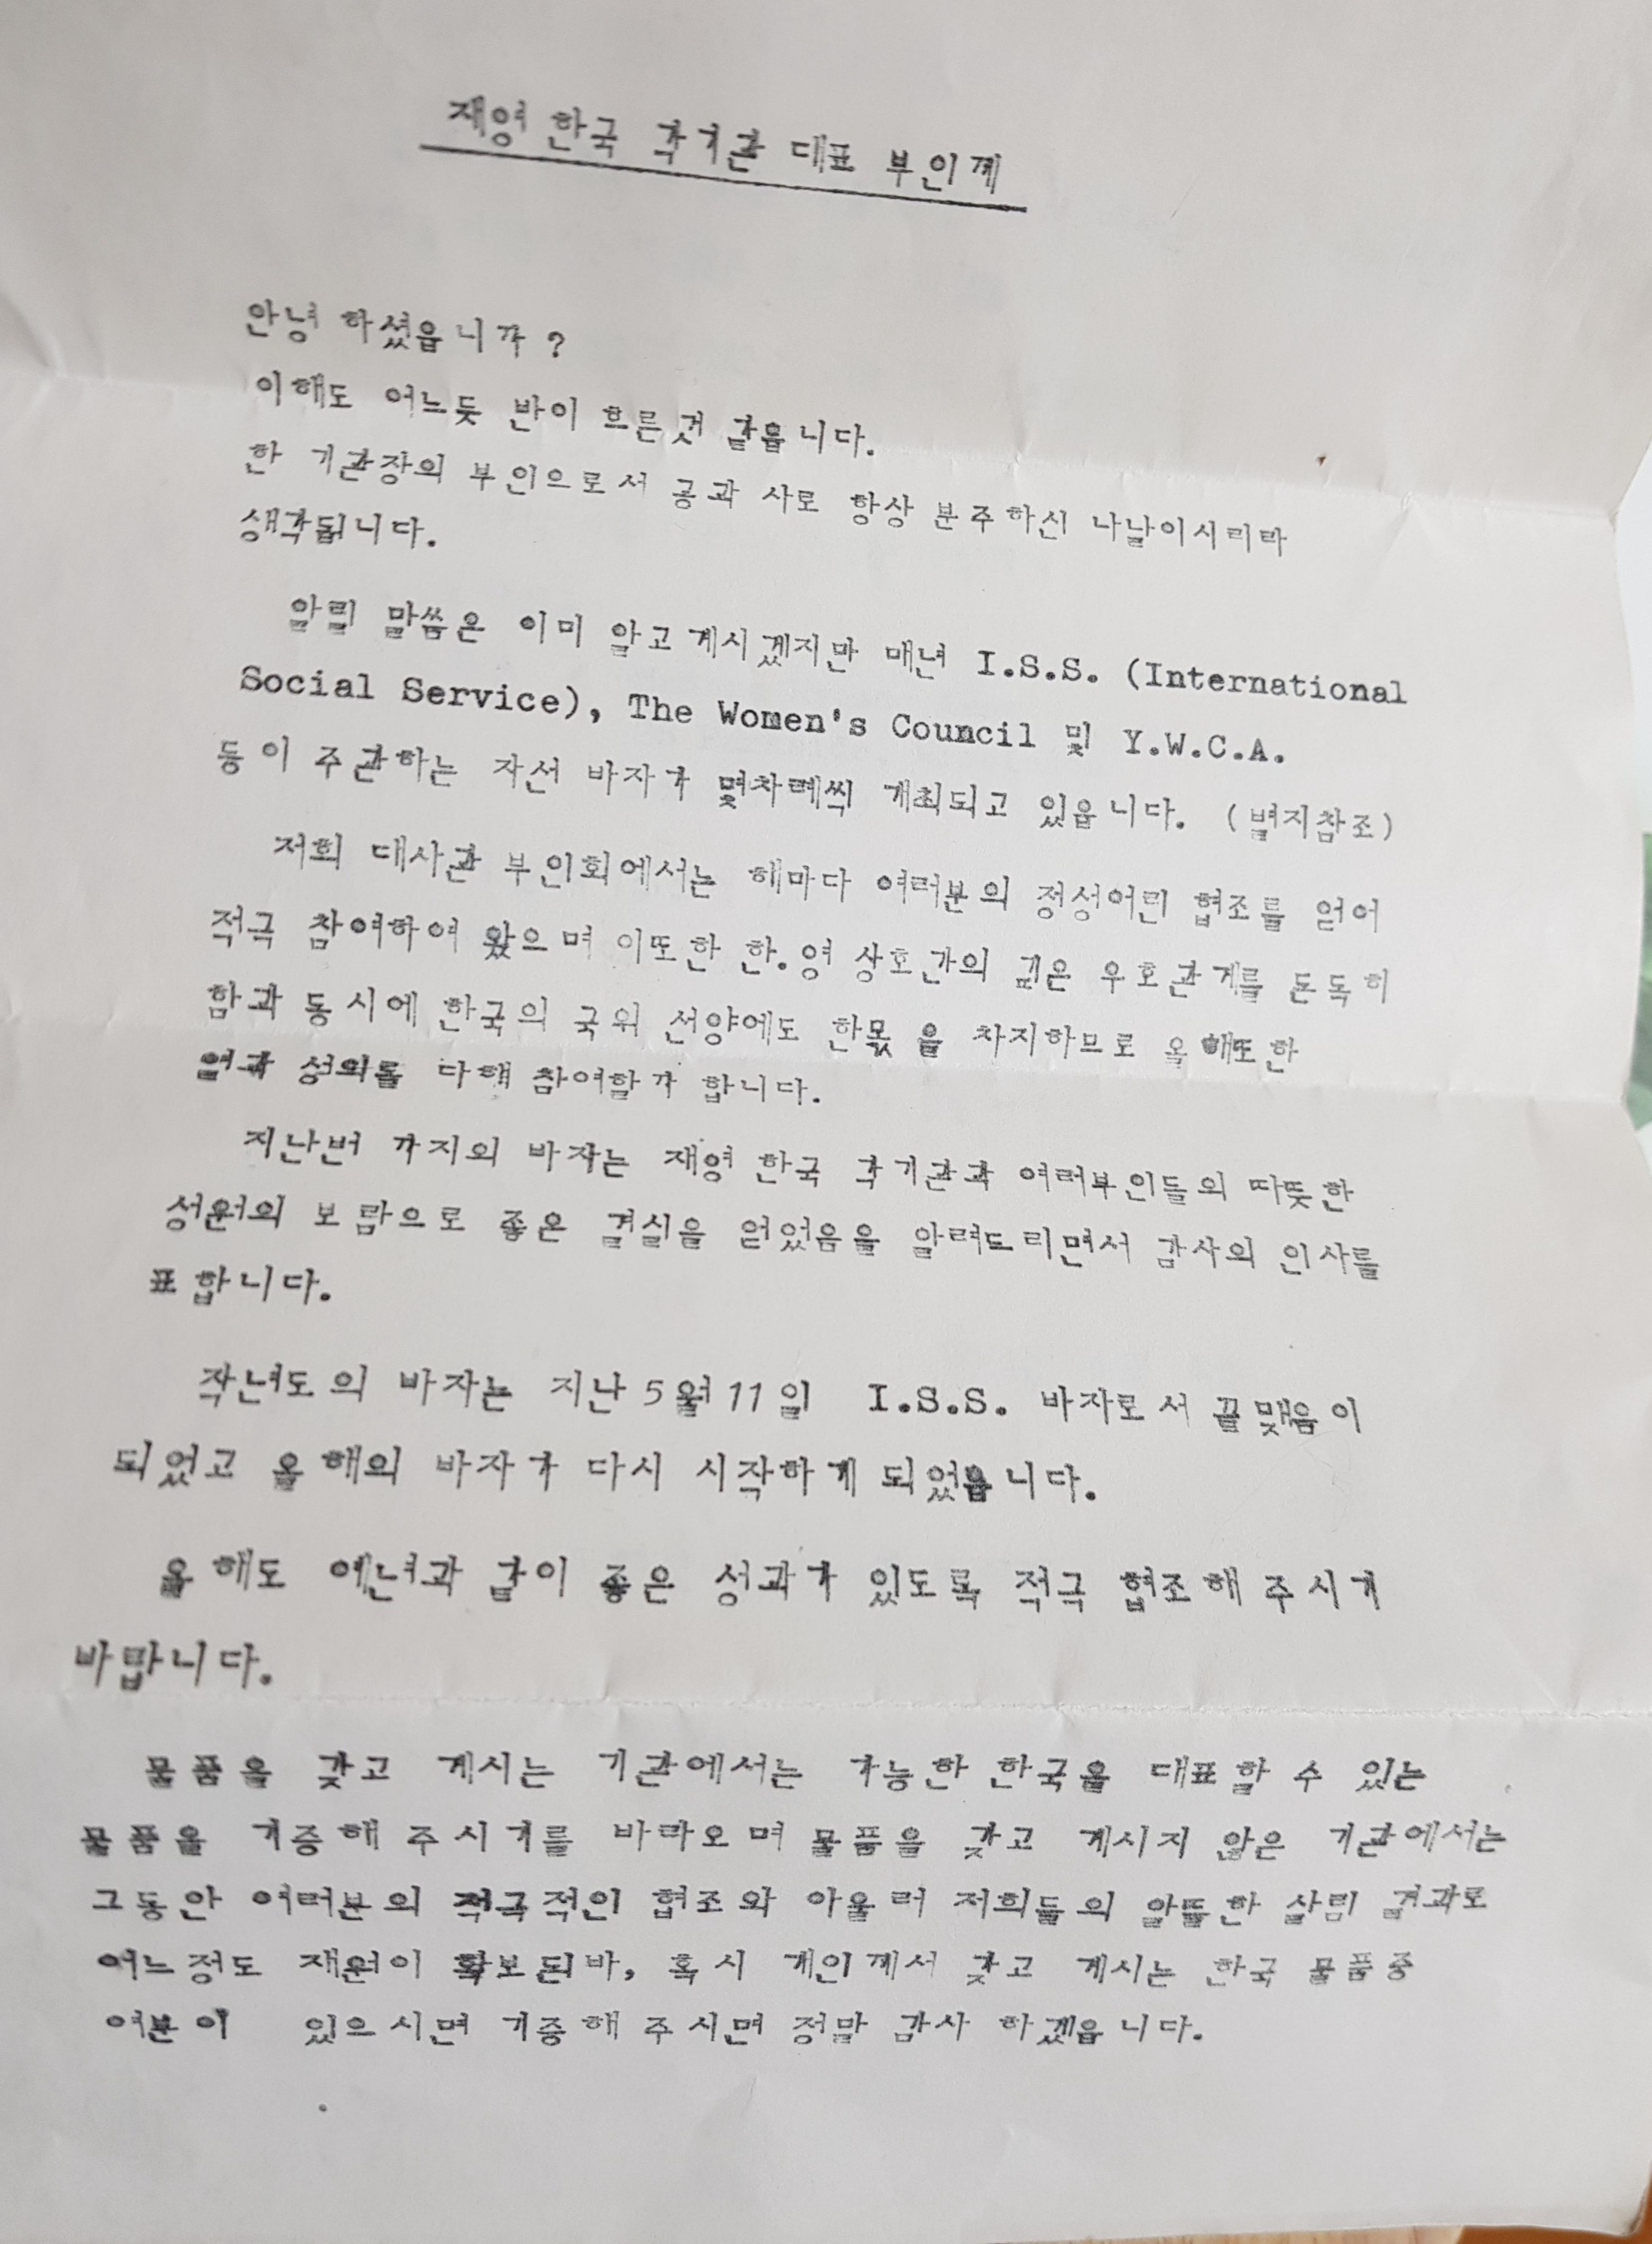 재영 한국 각기관 대표 부인께
안녕 하셨읍니까 ?
이해도 어느듯 반이 흐른것 같읍니다.
한 기관장의 부인으로서 공과 사로 항상 분주하신 나날이시리라
생각됩니다.
알릴 말씀은 이미 알고 계시겠지만 매년 I.S.S. (International
Social Service), The Women's Council 및 Y.W.C.A.
등이 주관하는 자선 바자가 몇차례씩 개최되고 있읍니다. (별지참조)
저희 대사관 부인회에서는 해마다 여러분의 정성어린 협조를 얻어
적극 참여하여 왔으며 이또한 한.영 상호간의 깊은 우호관계를 돈독히
함과 동시에 한국의 국위 선양에도 한몫을 차지하므로 올해또한
열과 성의를 다해 참여할까 합니다.
지난번 까지의 바자는 재영 한국 각기관과 여러부인들의 따뜻한
성원의 보람으로 좋은 결실을 얻었음을 알려드리면서 감사의 인사를
표합니다.
작년도의 바자는 지난 5월 11일 I.S.S. 바자로서 끝맺음이
되었고 올해의 바자가 다시 시작하게 되었읍니다.
올해도 예년과 같이 좋은 성과가 있도록 적극 협조해 주시기
바랍니다.
물품을 갖고 계시는 기관에서는 가능한 한국을 대표할 수 있는
물품을 기증해 주시기를 바라오며 물품을 갖고 계시지 않은 기관에서는
그동안 여러분의 적극적인 협조와 아울러 저희들의 알뜰한 살림 결과로
어느정도 재원이 확보된바, 혹시 개인께서 갖고 계시는 한국 물품중
여분이 있으시면 기증해 주시면 정말 감사 하겠읍니다.